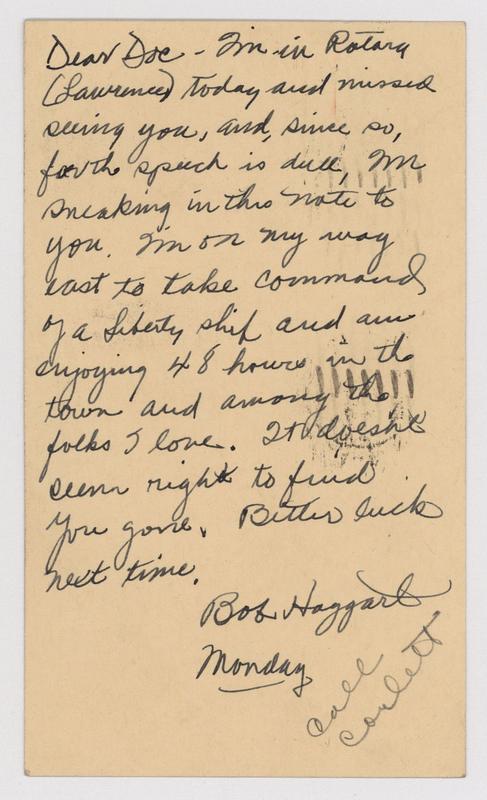 Dear Doc - I'm in Rotary
(Lawrence) today and missed
seeing you, and, since so,
for the speech is dull, I'm
sneaking in this note to
you. I'm on my way
east to take command
of a Liberty ship and am
enjoying 48 hours in the
town and among the
folks I love. It doesn't
seem right to find
you gone. Better luck
next time.
Bob Haggart
Monday
call
corlett